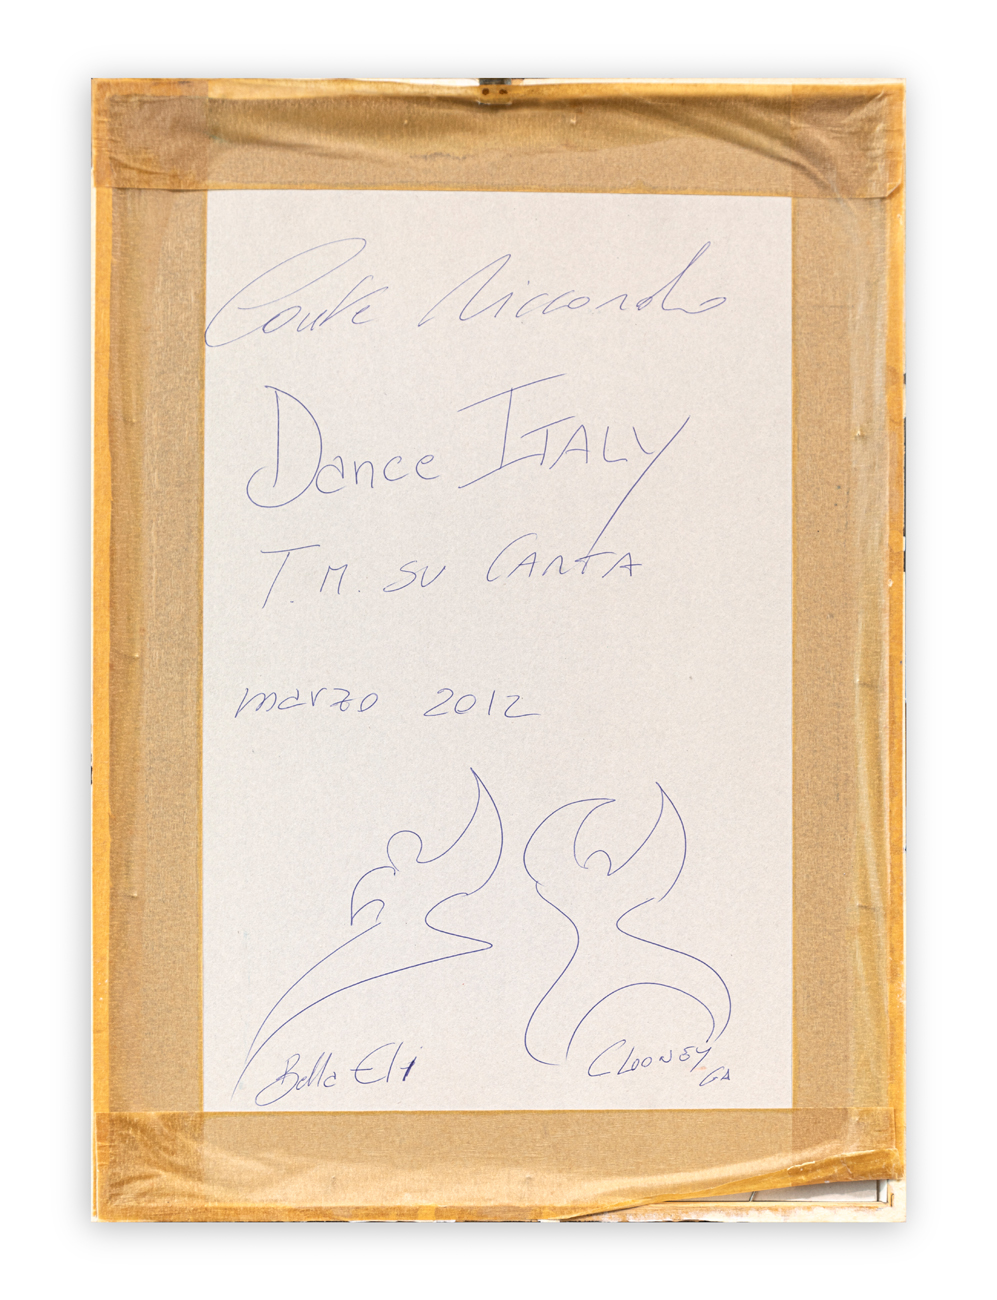 Conte Riccardo
Dance ITALY
T.M. SU CARTA
marzo 2012
Bella Eli
CLOONEY
GA